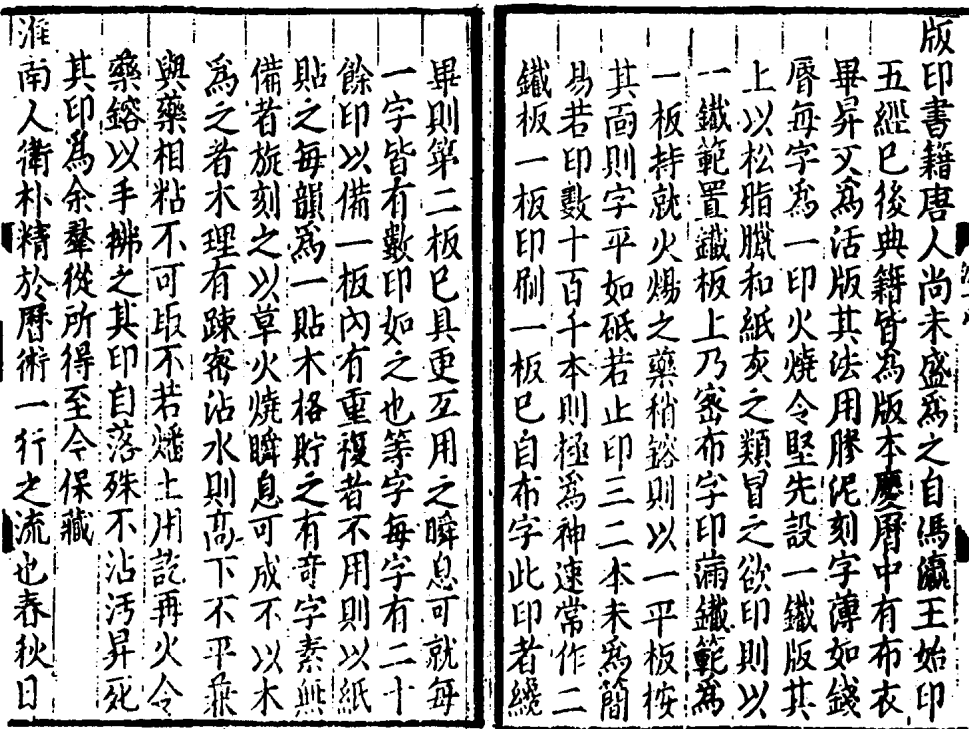 版印書籍唐人尚未盛為之自馮瀛王始印
五經已後典籍皆為版本慶曆中有布衣
畢昇又為活版其法用膠泥刻字薄如錢
脣每字為一印火燒令堅先設一鐵版其
上以松脂臘和紙灰之類冒之欲印則以
一鐵範置鐵板上乃密布字印滿鐵範為
一板持就火煬之藥稍鎔則以一平板按
其面則字平如砥若止印三二本未為簡
易若印數十百千本則極為神速常作二
鐵板一板印刷一板已自布字此印者纔
畢則第二板已具更互用之瞬息可就每
一字皆有數印如之也等字每字有二十
餘印以備一板內有重複者不用則以紙
貼之每韻為一貼木格貯之有奇字素無
備者旋刻之以草火燒瞬息可成不以木
為之者木理有踈密沾水則高下不平兼
與藥相粘不可取不若燔土用訖再火令
藥鎔以手拂之其印自落殊不沾汚昇死
其印為余羣從所得至今保藏
淮南人衛朴精於曆術一行之流也春秋日